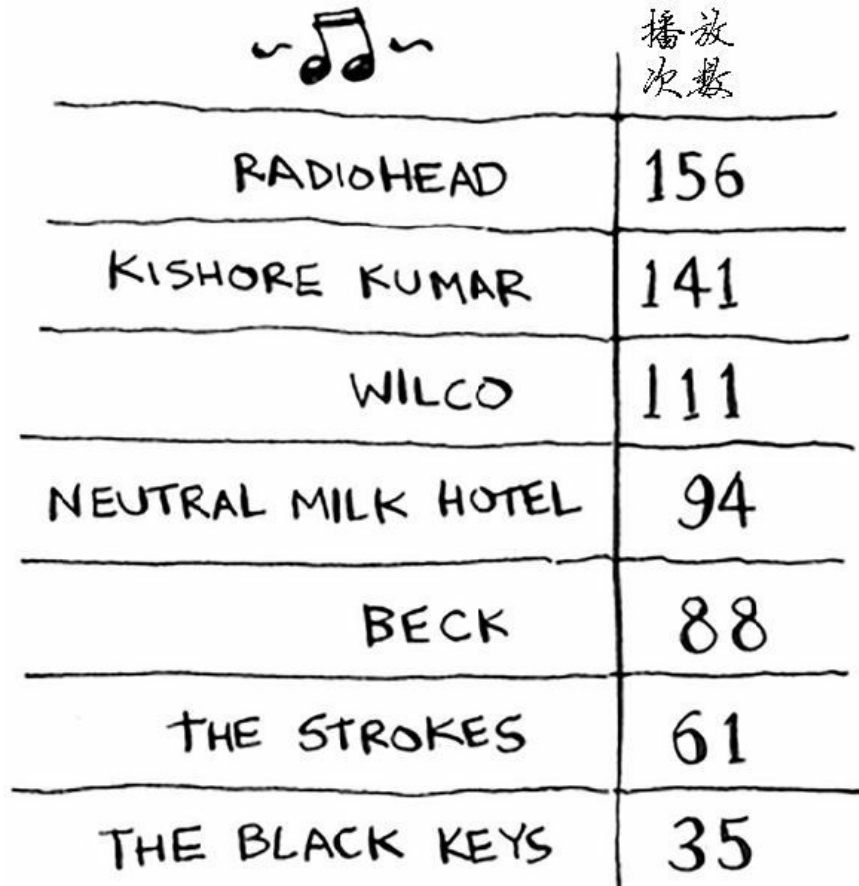 播放
次数
RADIOHEAD 156
KISHORE KUMAR 141
WILCO 111
NEUTRAL MILK HOTEL 94
BECK 88
THE STROKES 61
THE BLACK KEYS 35